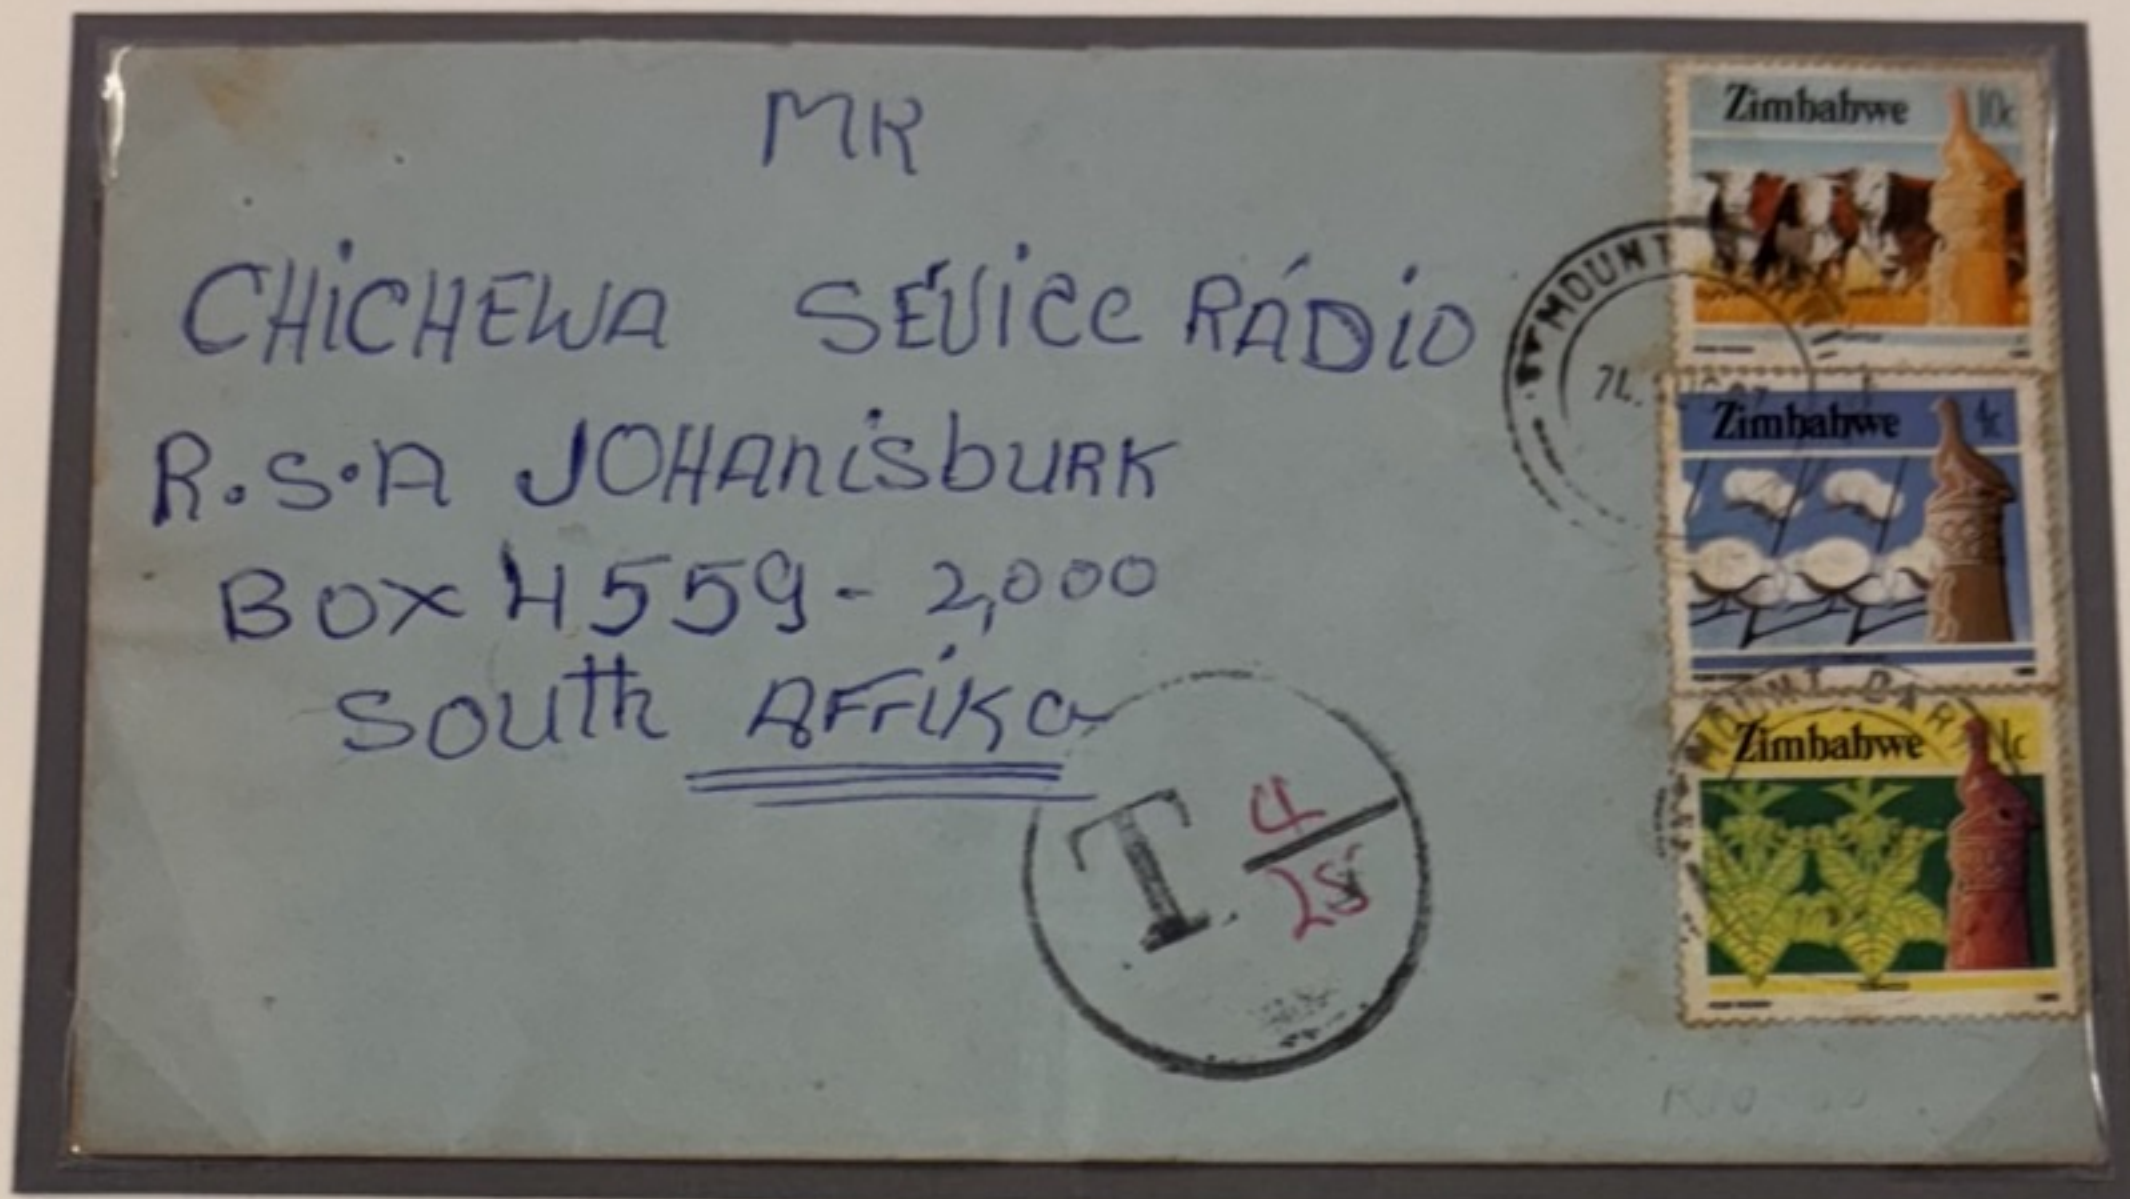 MR
CHICHEWA SÉVICE RÁDIO
R.S.A JOHANISBURK
BOX 4559 - 2,000
SOUTH AFFIKA
T 4
25
MOUNT
Zimbabwe 10c
Zimbabwe 4c
MOUNT DAR
Zimbabwe 1c